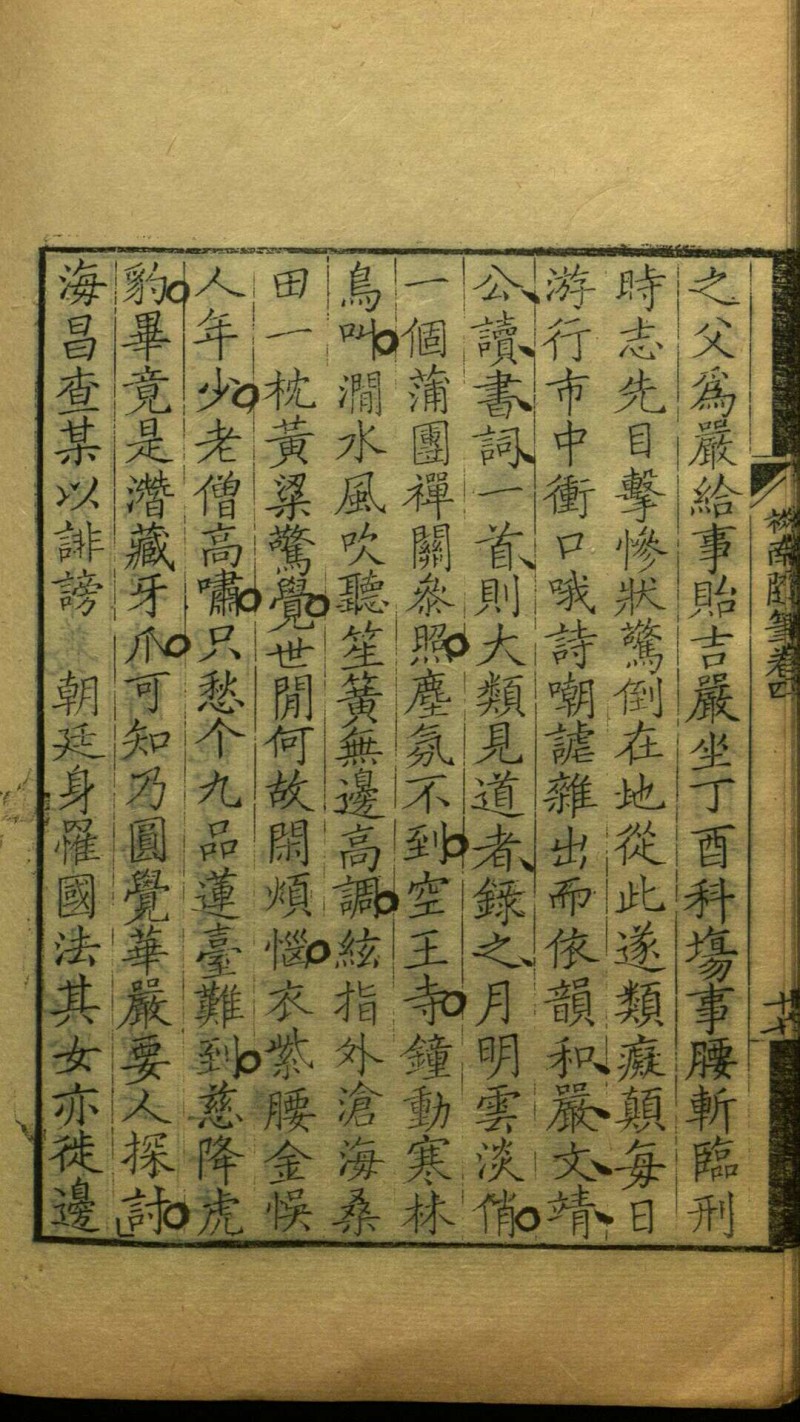 之父爲嚴給事貽吉嚴坐丁酉科塲事腰斬臨刑
時志先目擊慘狀驚倒在地從此遂類癡顛每日
游行市中衝口哦詩嘲謔雜出而依韻和嚴文靖
公讀書詞一首則大類見道者錄之月明雲淡俏
一個蒲團禪關叅照塵氛不到空王寺鐘動寒林
鳥叫澗水風吹聽笙簧無邊高調絃指外滄海桑
田一枕黃粱驚覺世閒何故閑煩惱衣紫腰金悞
人年少老僧高嘯只愁个九品蓮臺難到慈降虎
豹畢竟是潛藏牙爪可知乃圓覺華嚴要人探討
海昌查某以誹謗　朝廷身罹國法其女亦徙邊
南隨筆卷四
十七